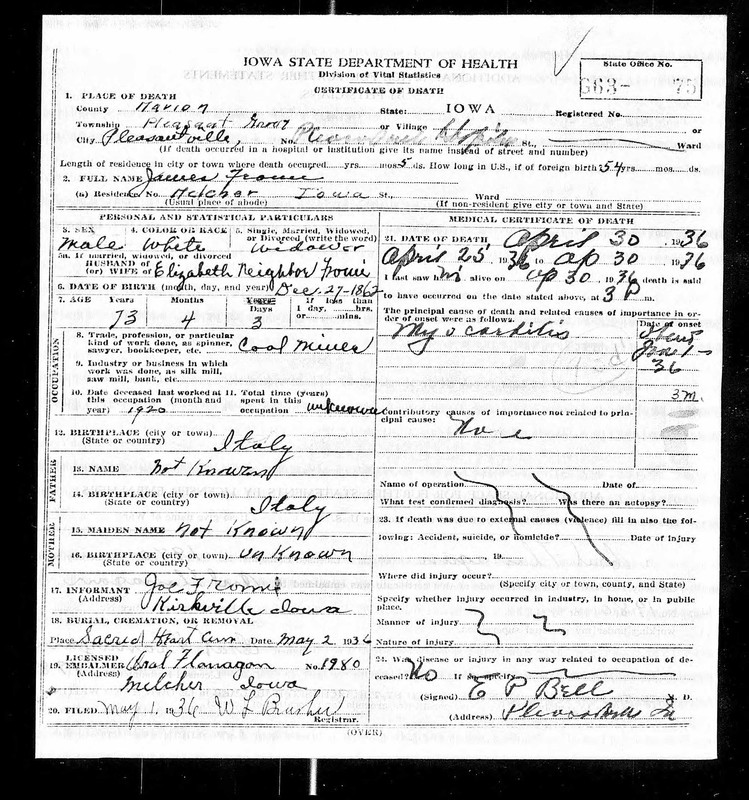 IOWA STATE DEPARTMENT OF HEALTH
Division of Vital Statistics
CERTIFICATE OF DEATH
State Office No.
G63- 75
1. PLACE OF DEATH
County Marion State: IOWA Registered No.
Township Pleasant Grove or Village or
City Pleasantville, No. St., Ward
(If death occurred in a hospital or institution give its name instead of street and number)
Length of residence in city or town where death occurred yrs. mos. 5 ds. How long in U.S., if of foreign birth 54 yrs. mos. ds.
2. FULL NAME James
(a) Residence No. Melcher Iowa St., Ward
(Usual place of abode) (If non-resident give city or town and State)
PERSONAL AND STATISTICAL PARTICULARS
3. SEX 4. COLOR OR RACE 5. Single, Married, Widowed, or Divorced (write the word)
Male White Widower
5a. If married, widowed, or divorced
HUSBAND of
(or) WIFE of Elizabeth Neighbor
6. DATE OF BIRTH (month, day, and year) Dec. 27-1862
7. AGE Years Months Days If less than 1 day, hrs. or mins.
73 4 3
OCCUPATION
8. Trade, profession, or particular
kind of work done, as spinner,
sawyer, bookkeeper, etc. Coal Miner
9. Industry or business in which
work was done, as silk mill,
saw mill, bank, etc.
10. Date deceased last worked at this occupation (month and year) 1920
11. Total time (years) spent in this occupation unknown
12. BIRTHPLACE (city or town)
(State or country) Italy
FATHER
13. NAME Not Known
14. BIRTHPLACE (city or town)
(State or country) Italy
MOTHER
15. MAIDEN NAME Not Known
16. BIRTHPLACE (city or town) Unknown
(State or country)
17. INFORMANT Joe
(Address) Kirkville Iowa
18. BURIAL, CREMATION, OR REMOVAL
Place Sacred Heart Cem Date May 2 1936
19. LICENSED EMBALMER Flanagan No. 1980
(Address) Melcher Iowa
20. FILED May 1, 1936 W L
Registrar.
MEDICAL CERTIFICATE OF DEATH
21. DATE OF DEATH April 30, 1936
April 25, 1936 to Ap 30 1936
I last saw him alive on Ap 30, 1936 death is said
to have occurred on the date stated above, at 3 P m.
The principal cause of death and related causes of importance in order of onset were as follows.
Date of onset
Myocarditis
about
June 1-
36
3 m.
Contributory causes of importance not related to principal cause:
None
Name of operation Date of
What test confirmed diagnosis? Was there an autopsy?
23. If death was due to external causes (violence) fill in also the following: Accident, suicide, or homicide? Date of injury
, 19
Where did injury occur?
(Specify city or town, county, and State)
Specify whether injury occurred in industry, in home, or in public place.
Manner of injury
Nature of injury
24. Was disease or injury in any way related to occupation of deceased? No If so, specify
(Signed) E P Bell M. D.
(Address)
(OVER)